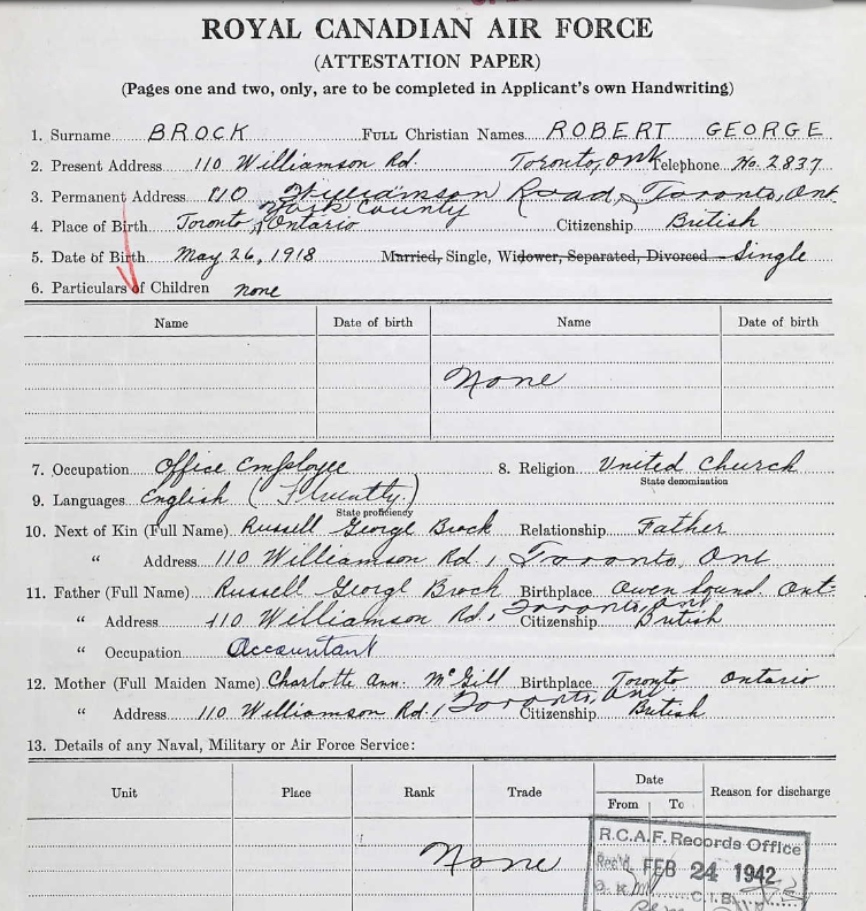 ROYAL CANADIAN AIR FORCE
(ATTESTATION PAPER)
(Pages one and two, only, are to be completed in Applicant's own Handwriting)
1. Surname BROCK Full Christian Names ROBERT GEORGE
2. Present Address 110 Williamson Rd. Toronto, Ont Telephone No. 2837
3. Permanent Address 110 Williamson Road, Toronto, Ont
York County
4. Place of Birth Toronto, Ontario Citizenship British
5. Date of Birth May 26, 1918 Married, Single, Widower, Separated, Divorced – Single
6. Particulars of Children none
Name Date of birth Name Date of birth
None
7. Occupation Office Employee 8. Religion United Church
State denomination
9. Languages English (Fluently.)
State proficiency
10. Next of Kin (Full Name) Russell George Brock Relationship Father
" Address 110 Williamson Rd, Toronto, Ont
11. Father (Full Name) Russell George Brock Birthplace Owen Sound. Ont.
" Address 110 Williamson Rd., Toronto, Ont. Citizenship British
" Occupation Accountant
12. Mother (Full Maiden Name) Charlotte Ann. McGill Birthplace Toronto Ontario
" Address 110 Williamson Rd, Toronto, Ont Citizenship British
13. Details of any Naval, Military or Air Force Service:
Unit Place Rank Trade Date Reason for discharge
From To
None
R.C.A.F. Records Office
Rec'd FEB 24 1942
C.I.B.